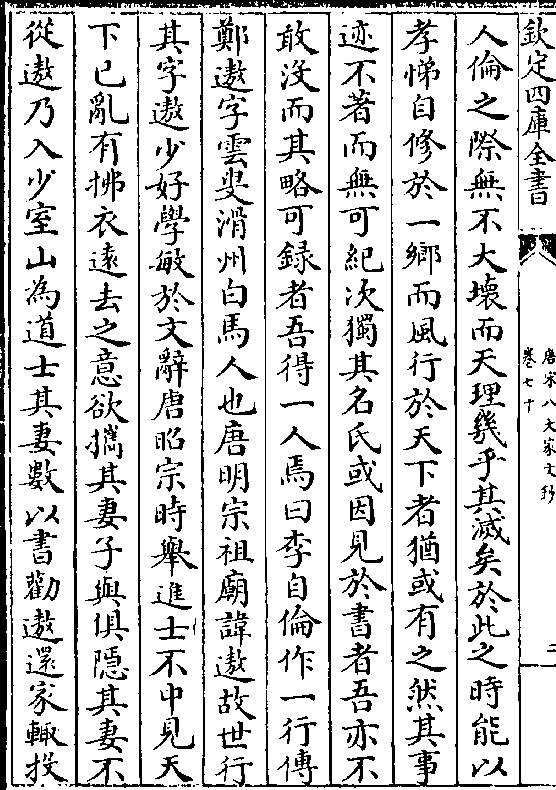 欽定四庫全書
唐宋八大家文鈔
卷七十
二
人倫之際無不大壞而天理幾乎其滅矣於此之時能以
孝悌自修於一鄉而風行於天下者猶或有之然其事
迹不著而無可紀次獨其名氏或因見於書者吾亦不
敢沒而其略可録者吾得一人焉曰李自倫作一行傳
鄭遨字雲叟滑州白馬人也唐明宗祖廟諱遨故世行
其字遨少好學敏於文辭唐昭宗時舉進士不中見天
下已亂有拂衣遠去之意欲攜其妻子與俱隱其妻不
從遨乃入少室山為道士其妻數以書勸遨還家輙投